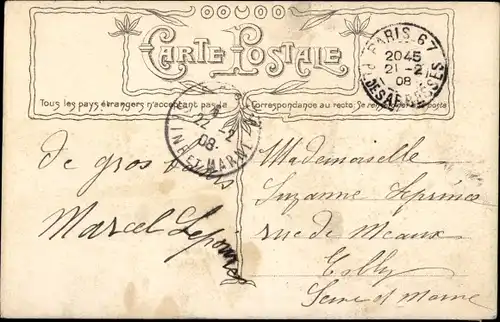 CARTE POSTALE
Tous les pays étrangers n'acceptant pas la Correspondance au recto. Se renseigner à la poste
PARIS 67
2045
21-2
08
PL. DES ABBESSES
22-2
08
SEINE ET MARNE
De gros
Marcel
Mademoiselle
Suzanne Leprince
rue de Meaux
Esbly
Seine et Marne